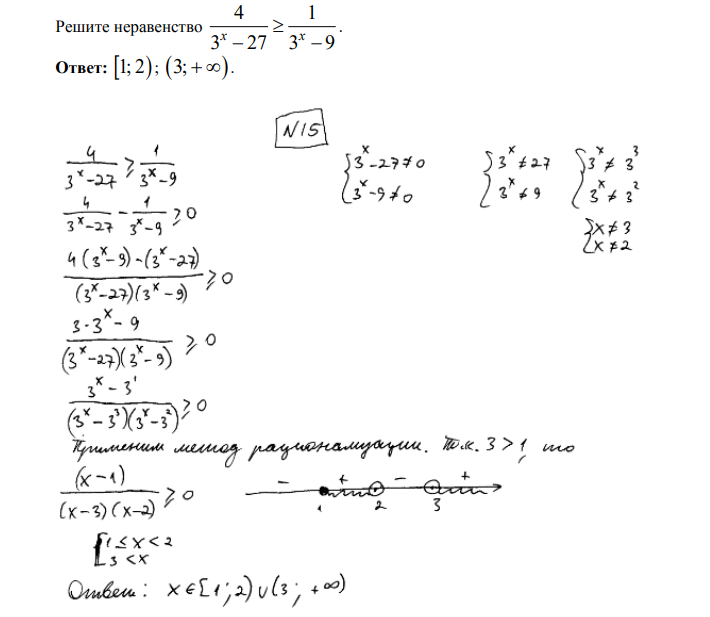 Решите неравенство 4/(3^x − 27) ≥ 1/(3^x − 9).
Ответ: [1; 2); (3; +∞).
N15
4/(3^x − 27) ≥ 1/(3^x − 9)
{3^x − 27 ≠ 0
{3^x − 9 ≠ 0
{3^x ≠ 27
{3^x ≠ 9
{3^x ≠ 3^3
{3^x ≠ 3^2
{x ≠ 3
{x ≠ 2
4/(3^x − 27) − 1/(3^x − 9) ≥ 0
(4(3^x − 9) − (3^x − 27))/((3^x − 27)(3^x − 9)) ≥ 0
(3·3^x − 9)/((3^x − 27)(3^x − 9)) ≥ 0
(3^x − 3^1)/((3^x − 3^3)(3^x − 3^2)) ≥ 0
Применим метод рационализации. Т.к. 3 > 1, то
(x − 1)/((x − 3)(x − 2)) ≥ 0
− + − +
1 2 3
[1 ≤ x < 2
[3 < x
Ответ: x ∈ [1; 2) ∪ (3; +∞)